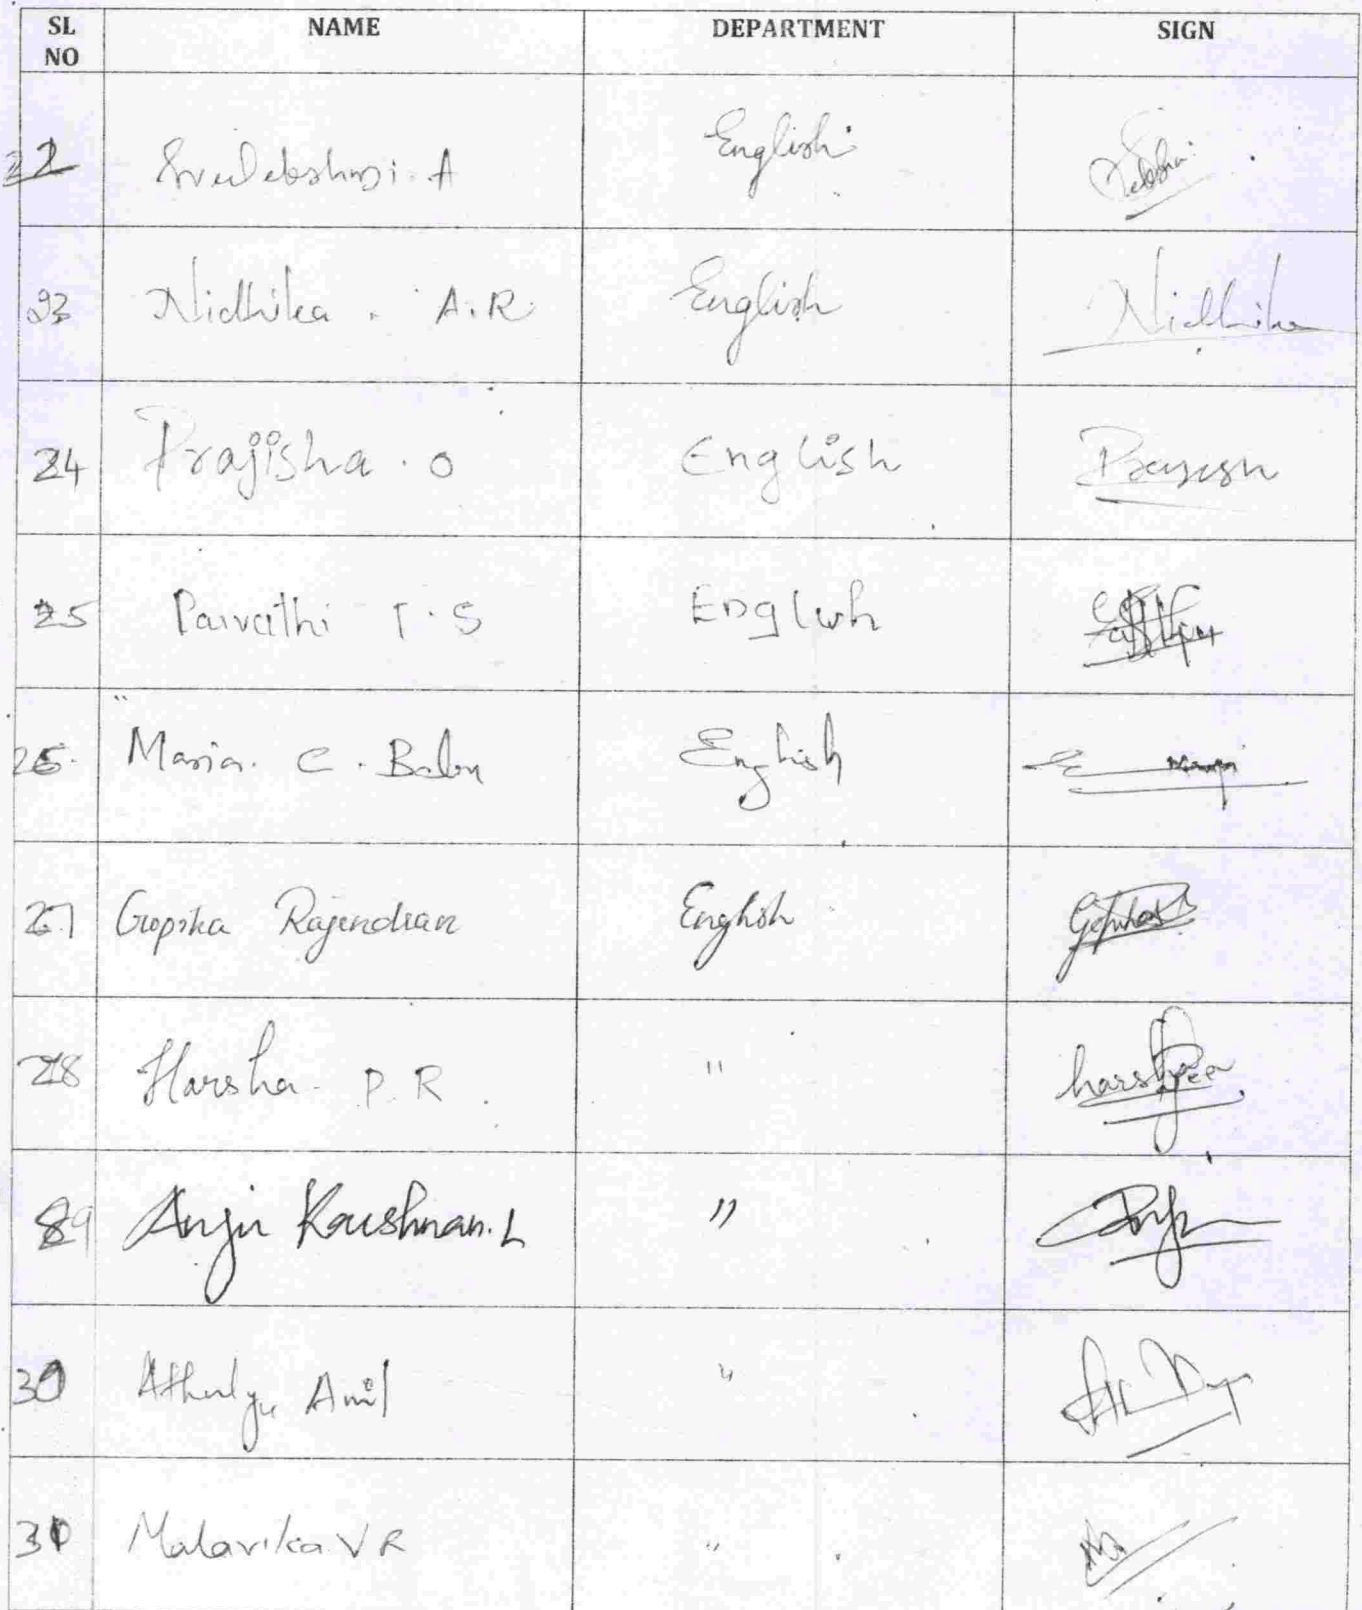 SL NO NAME DEPARTMENT SIGN
22 Sreelekshmi. A English
23 Nidhika . A.R English Nidhika
24 Prajisha . O English
25 Parvathi T.S English
26. Maria. C. Babu English
27 Gopika Rajendran English
28 Harsha P.R. " harsha
29 Anju Krishnan. L "
30 Athulya Anil "
31 Malavika V R "